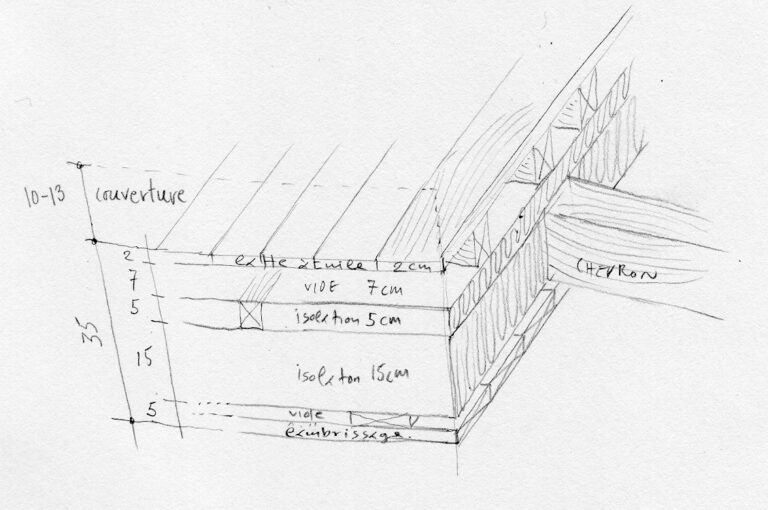 10-13 couverture
2
2cm
7
VIDE 7cm
5
isolation 5cm
35
15
isolaton 15cm
5
vide
CHEVRON